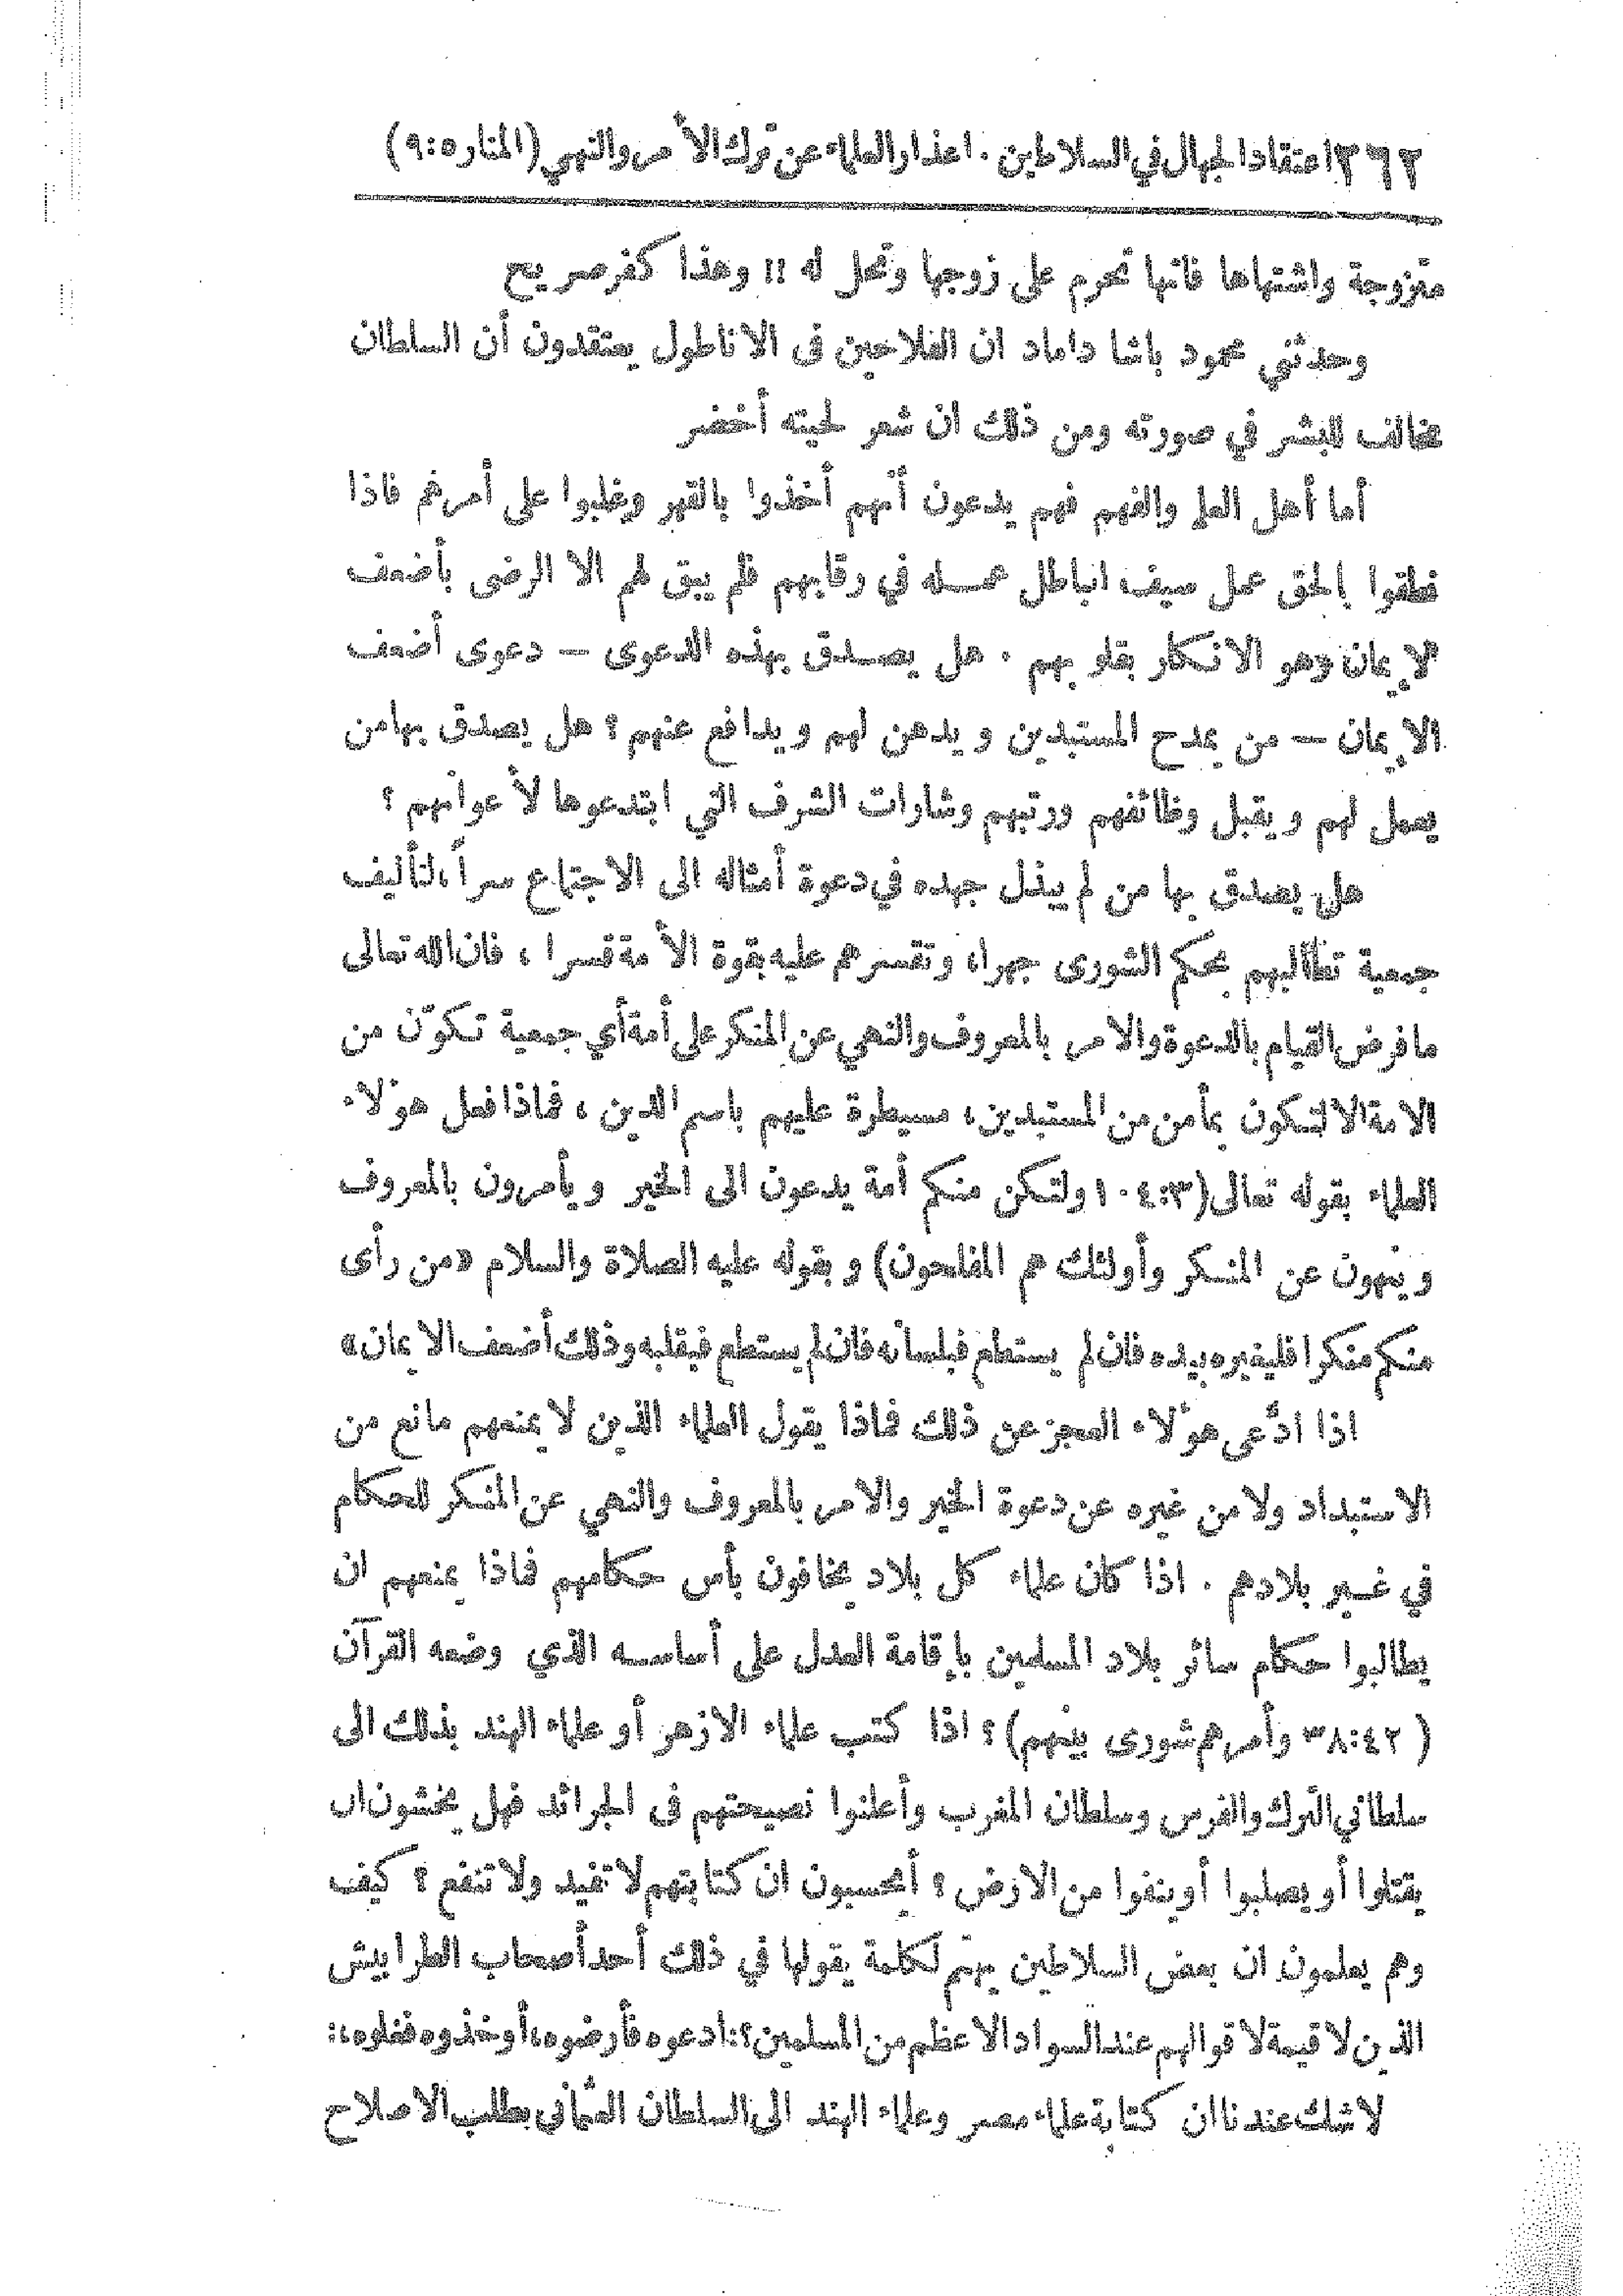 ٣٦٢ اعتقاد الجهال في السلاطين . اعذار العلماء عن ترك الأمر والنهي (المنار ٥:٩)
متزوجة واشتهاها فانها تحرم على زوجها وتحل له !! وهذا كفر صريح
وحدثني محمود باشا داماد ان الفلاحين في الاناطول يعتقدون أن السلطان
مخالف للبشر في صورته ومن ذلك ان شعر لحيته أخضر
أما أهل العلم والفهم فهم يدعون أنهم أخذوا بالقهر وغلبوا على أمرهم فاذا
نطقوا بالحق عمل سيف الباطل عمله في رقابهم فلم يبق لهم الا الرضى بأضعف
الإيمان وهو الانكار بقلوبهم . هل يصدق بهذه الدعوى — دعوى أضعف
الإيمان — من يمدح المستبدين ويدهن لهم ويدافع عنهم ؟ هل يصدق بها من
يعمل لهم ويقبل وظائفهم ورتبهم وشارات الشرف التي ابتدعوها لأعوانهم ؟
هل يصدق بها من لم يبذل جهده في دعوة أمثاله الى الاجتماع سراً، لتأليف
جمعية تطالبهم بحكم الشورى جهرا، وتقسرهم عليه بقوة الأمة قسرا ، فان الله تعالى
ما فرض القيام بالدعوة والامر بالمعروف والنهي عن المنكر على أمة أي جمعية تكوّن من
الامة الا لتكون بمأمن من المستبدين، مسيطرة عليهم باسم الدين ، فماذا فعل هؤلاء
العلماء بقوله تعالى (١٠٤:٣ ولتكن منكم أمة يدعون الى الخير ويأمرون بالمعروف
وينهون عن المنكر وأولئك هم المفلحون) وبقوله عليه الصلاة والسلام «من رأى
منكم منكرا فليغيره بيده فان لم يستطع فبلسانه فان لم يستطع فبقلبه وذلك أضعف الايمان»
اذا ادّعى هؤلاء العجز عن ذلك فماذا يقول العلماء الذين لا يمنعهم مانع من
الاستبداد ولا من غيره عن دعوة الخير والامر بالمعروف والنهي عن المنكر للحكام
في غير بلادهم . اذا كان علماء كل بلاد يخافون بأس حكامهم فماذا يمنعهم ان
يطالبوا حكام سائر بلاد المسلمين بإقامة العدل على أساسه الذي وضعه القرآن
( ٣٨:٤٢ وأمرهم شورى بينهم) ؟ اذا كتب علماء الازهر أو علماء الهند بذلك الى
سلطاني الترك والفرس وسلطان المغرب وأعلنوا نصيحتهم في الجرائد فهل يخشون ان
يقتلوا أو يصلبوا أو ينفوا من الارض ؟ أيحسبون ان كتابتهم لا تفيد ولا تنفع ؟ كيف
وهم يعلمون ان بعض السلاطين يهتم لكلمة يقولها في ذلك أحد أصحاب الطرابيش
الذين لا قيمة لاقوالهم عند السواد الاعظم من المسلمين ؟: ادعوه فأرضوه، أو خذوه فغلوه،:
لا شك عندنا ان كتابة علماء مصر وعلماء الهند الى السلطان العثماني بطلب الاصلاح